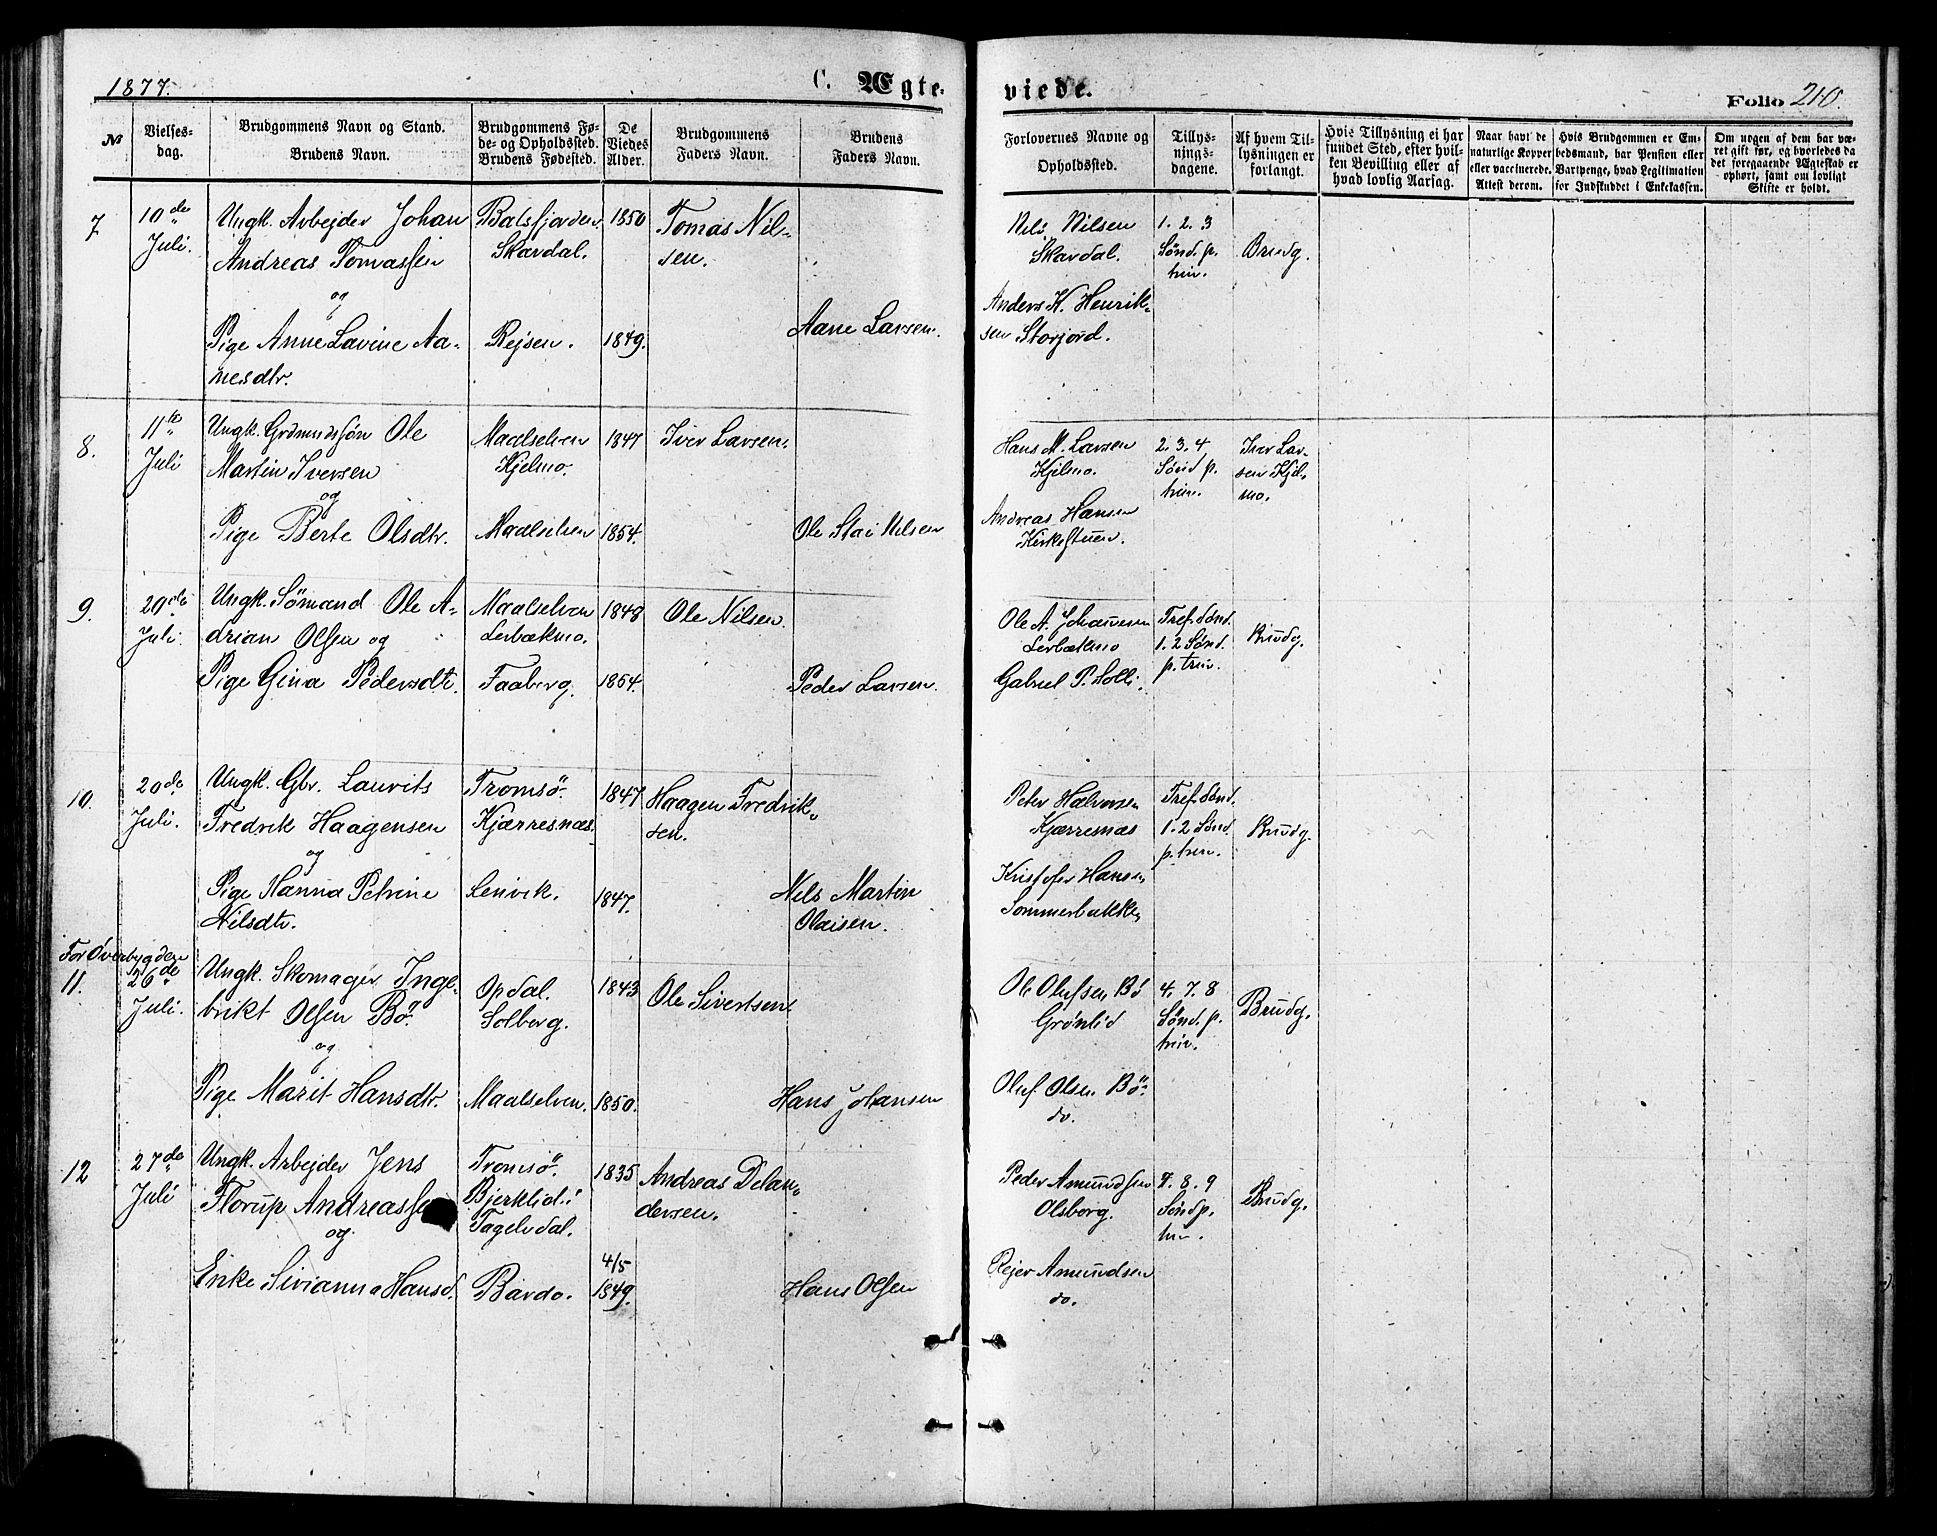 1877.
C. Ægte-
viede.
Folio 210.
№
Vielses-
dag.
Brudgommens Navn og Stand.
Brudens Navn.
Brudgommens Fø-
de- og Opholdssted.
Brudens Fødested.
De
Viedes
Alder.
Brudgommens
Faders Navn.
Brudens
Faders Navn.
Forlovernes Navne og
Opholdssted.
Tillys-
nings-
dagene.
Af hvem Til-
lysningen er
forlangt.
Hvis Tillysning ei har
fundet Sted, efter hvil-
ken Bevilling eller af
hvad lovlig Aarsag.
Naar havt de
naturlige Kopper
eller vaccinerede.
Attest derom.
Hvis Brudgommen er Em-
bedsmand, har Pension eller
Vartpenge, hvad Legitimation
for Indskuddet i Enkekassen.
Om nogen af dem har væ-
ret gift før, og hvorledes da
det foregaaende Ægteskab er
ophørt, samt om lovligt
Skifte er holdt.
7
10de
Juli.
Ungk. Arbejder Johan
Andreas Tomassen
og
Pige Anne Lavine Aa-
nesdtr.
Balsfjorden.
Skardal.
Rejsen.
1850
1849.
Tomas Nil-
sen.
Aane Larsen.
Nils Nilsen
Skardal.
Anders K. Henrik-
sen Storjord.
1. 2. 3
Sönd. p.
trin.
Brudg.
8.
11te
Juli
Ungk. Grdmndssön Ole
Martin Iversen
og
Pige Berte Olsdtr.
Maalselven
Kjelmo.
Maalselven
1847
1854.
Iver Larsen.
Ole Stai Nilsen
Hans M. Larsen
Kjelmo.
Andreas Hansen
Kirkestuen.
2. 3. 4
Sönd p.
trin.
Iver Lar-
sen Kjel-
mo.
9.
20de
Juli.
Ungk. Sömand Ole A-
drian Olsen og
Pige Gina Pedersdtr.
Maalselven
Lerbækmo.
Faaberg.
1848
1854.
Ole Nilsen.
Peder Larsen.
Ole A. Johannesen
Lerbækmo
Gabriel P. Solli.
Tref. Sönd.
1. 2 Sönd.
p. trin.
Brudg.
10.
20de
Juli.
Ungk. Gbr. Laurits
Fredrik Haagensen
og
Pige Hanna Petrine
Nilsdtr.
Tromsö.
Kjærresnæs.
Lenvik.
1847
1847.
Haagen Fredrik-
sen.
Nils Martin
Olaisen.
Peter Halvorsen
Kjærresnæs
Kristofer Hansen
Sommerbakken
Tref. Sönd.
1. 2 Sönd.
p. trin.
Brudg.
For Øverbygden
11.
26de
Juli.
Ungk. Skomager Inge-
brikt Olsen Bö.
og
Pige Marit Hansdtr.
Opdal.
Solberg.
Maalselven.
1843
1850.
Ole Sivertsen
Hans Johansen
Ole Olufsen Bö
Grönlid
Oluf Olsen Bö
do.
4. 7. 8
Sönd. p.
trin.
Brudg.
12
27de
Juli
Ungk. Arbejder Jens
Florup Andreassen
og
Enke Sivianna Hansd.
Tromsö.
Bjerklid i
Tagelvdal.
Bardo.
1835
4/5
1849.
Andreas Delan-
dersen.
Hans Olsen
Peder Amundsen
Olsborg.
Rejer Amundsen
do.
7. 8. 9
Sönd p.
trin.
Brudg.